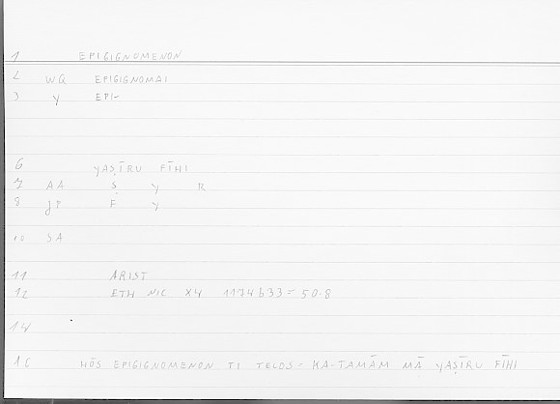 1 EPIGIGNOMENON
2 WQ EPIGIGNOMAI
3 Y EPI-
6 YAṢĪRU FĪHI
7 AA Ṣ Y R
8 JP F Y
10 SA
11 ARIST
12 ETH NIC X4 1174b33 = 50.8
14
16 HŌS EPIGIGNOMENON TI TELOS - KA-TAMĀM MĀ YAṢĪRU FĪHI